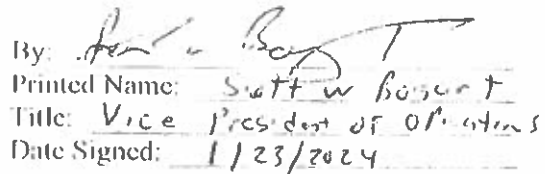 By:
Printed Name: Scott W Bogert
Title: Vice President of Operations
Date Signed: 1/23/2024